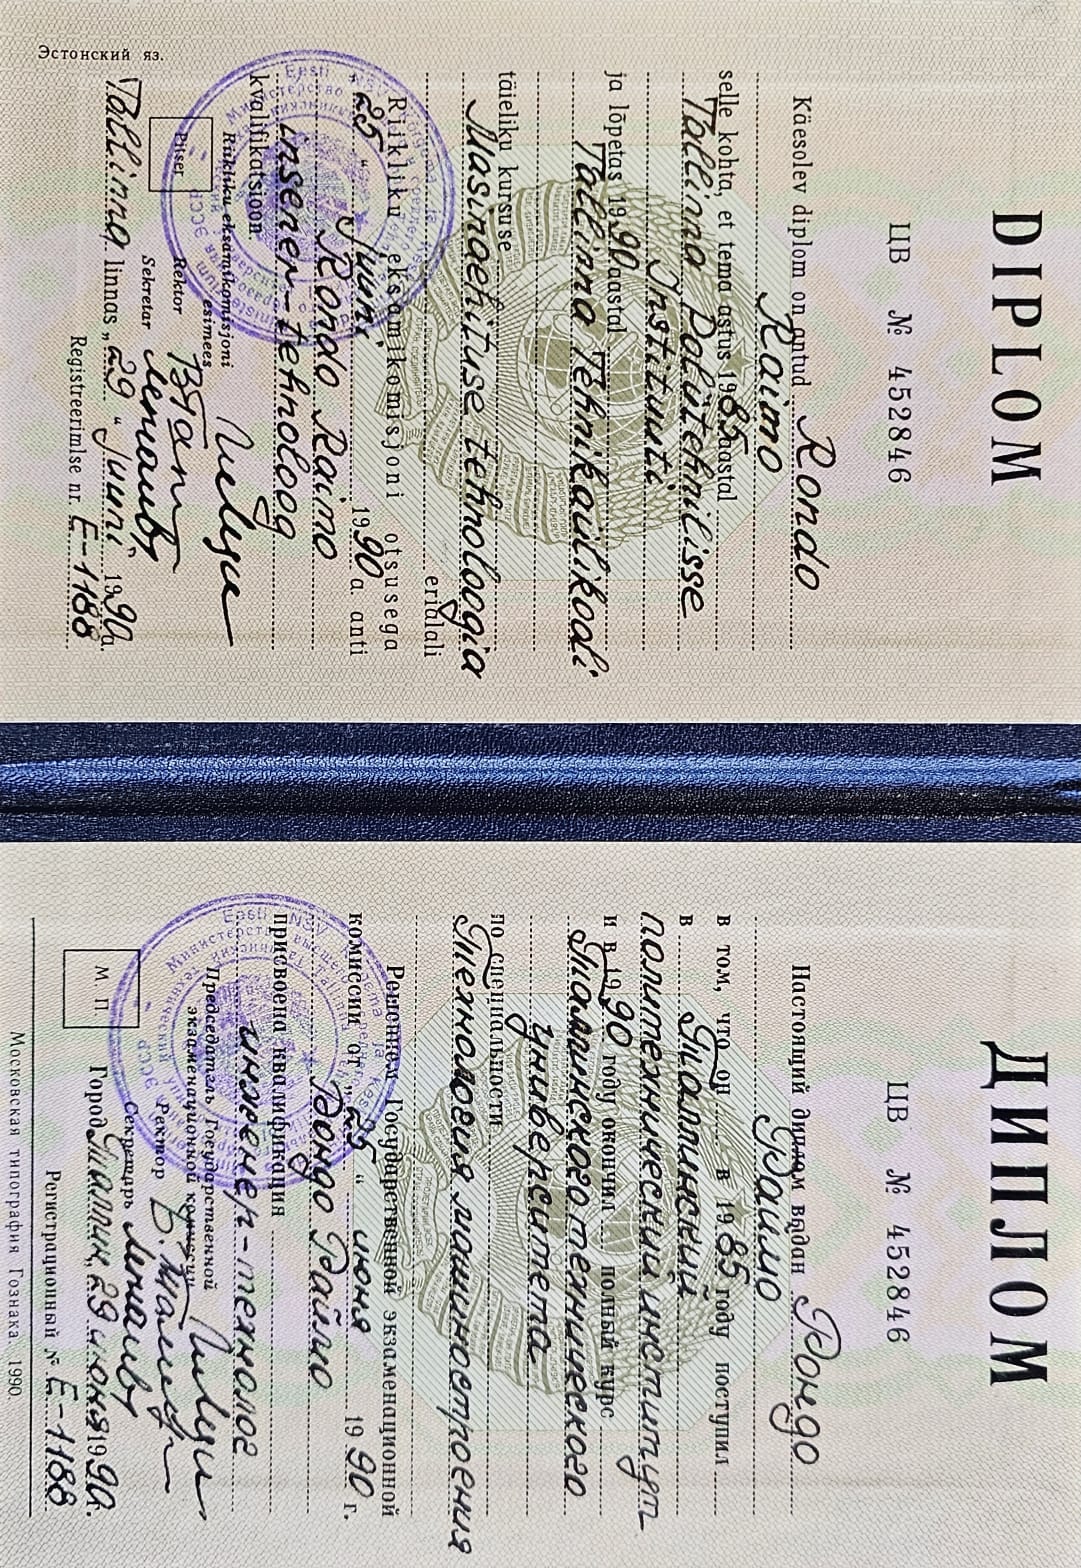 DIPLOM
ЦВ № 452846
Käesolev diplom on antud Rondo
Raimo
selle kohta, et tema astus 1985 aastal
Tallinna Polütehnilisse
Instituuti
ja lõpetas 1990 aastal
Tallinna Tehnikaülikooli
täieliku kursuse
Masinaehituse tehnoloogia
erialal
Riikliku eksamikomisjoni otsusega
"25" juuni 1990 a. anti
Rondo Raimo
insener-tehnoloog
kvalifikatsioon
Riikliku eksamikomisjoni
esimees
Rektor
Sekretär
Pitser
Tallinna linnas „29" juuni 1990 a.
Registreerimise nr. E-1188
Эстонский яз.
ДИПЛОМ
ЦВ № 452846
Настоящий диплом выдан Рондо
Раймо
в том, что он в 1985 году поступил
в Таллинский
политехнический институт
и в 1990 году окончил полный курс
Таллинского технического
университета
по специальности
Технология машиностроения
Решением Государственной экзаменационной
комиссии от „25" июня 1990 г.
Рондо Раймо
присвоена квалификация
инженер-технолог
Председатель Государственной
экзаменационной комиссии
Ректор
Секретарь
М. П.
Город Таллин, 29 июня 1990 г.
Регистрационный № Е-1188
Московская типография Гознака. 1990.